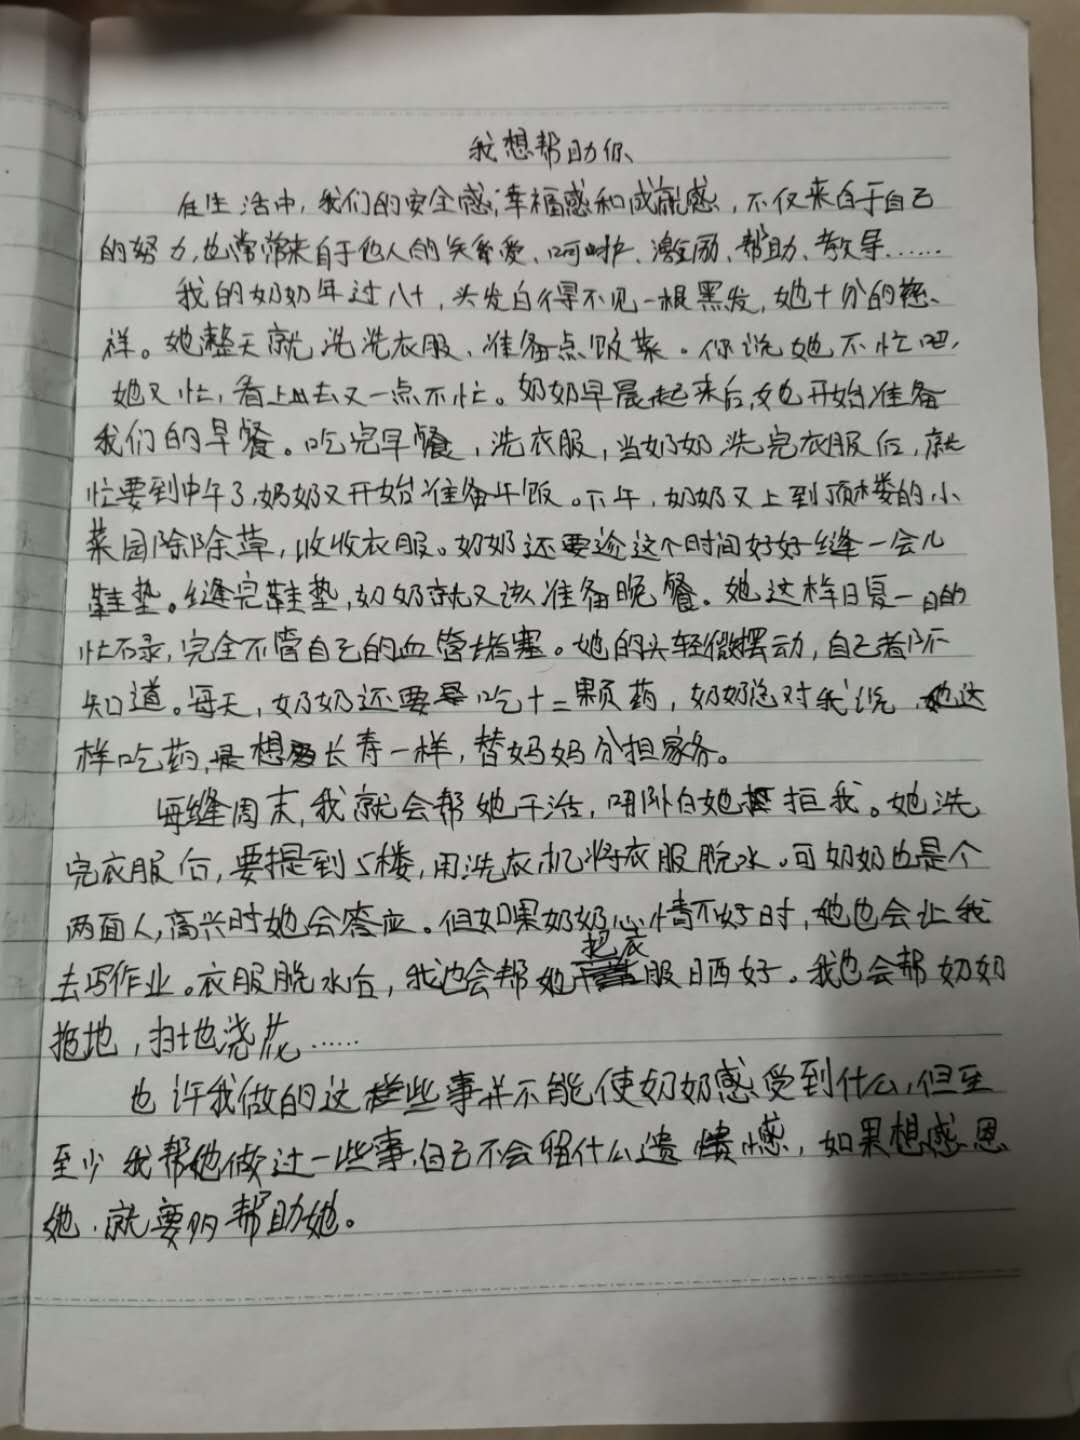 我想帮助你
在生活中，我们的安全感，幸福感和成就感，不仅来自于自己
的努力，也常常来自于他人的关爱、呵护、激励、帮助、教导……
我的奶奶年过八十，头发白得不见一根黑发，她十分的慈
祥。她整天就洗洗衣服、准备点饭菜。你说她不忙吧，
她又忙，看上去又一点不忙。奶奶早晨起来后，她开始准备
我们的早餐。吃完早餐，洗衣服，当奶奶洗完衣服后，就
忙要到中午了，奶奶又开始准备午饭。下午，奶奶又上到顶楼的小
菜园除除草，收收衣服。奶奶还要趁这个时间好好缝一会儿
鞋垫。缝完鞋垫，奶奶就又该准备晚餐。她这样日复一日的
忙碌，完全不管自己的血管堵塞。她的头轻微摆动，自己都不
知道。每天，奶奶还要吃十二颗药，奶奶总对我说，她这
样吃药，是想长寿一样，替妈妈分担家务。
每缝周末，我就会帮她干活，明她拒我。她洗
完衣服后，要提到5楼，用洗衣机将衣服脱水。可奶奶也是个
两面人，高兴时她会答应。但如果奶奶心情不好时，她也会让我
去写作业。衣服脱水后，我也会帮她把衣服晒好。我也会帮奶奶
拖地，扫地浇花……
也许我做的这些事并不能使奶奶感受到什么，但至
至少我帮她做过一些事，自己不会留什么遗憾，如果想感恩
她，就要多帮助她。